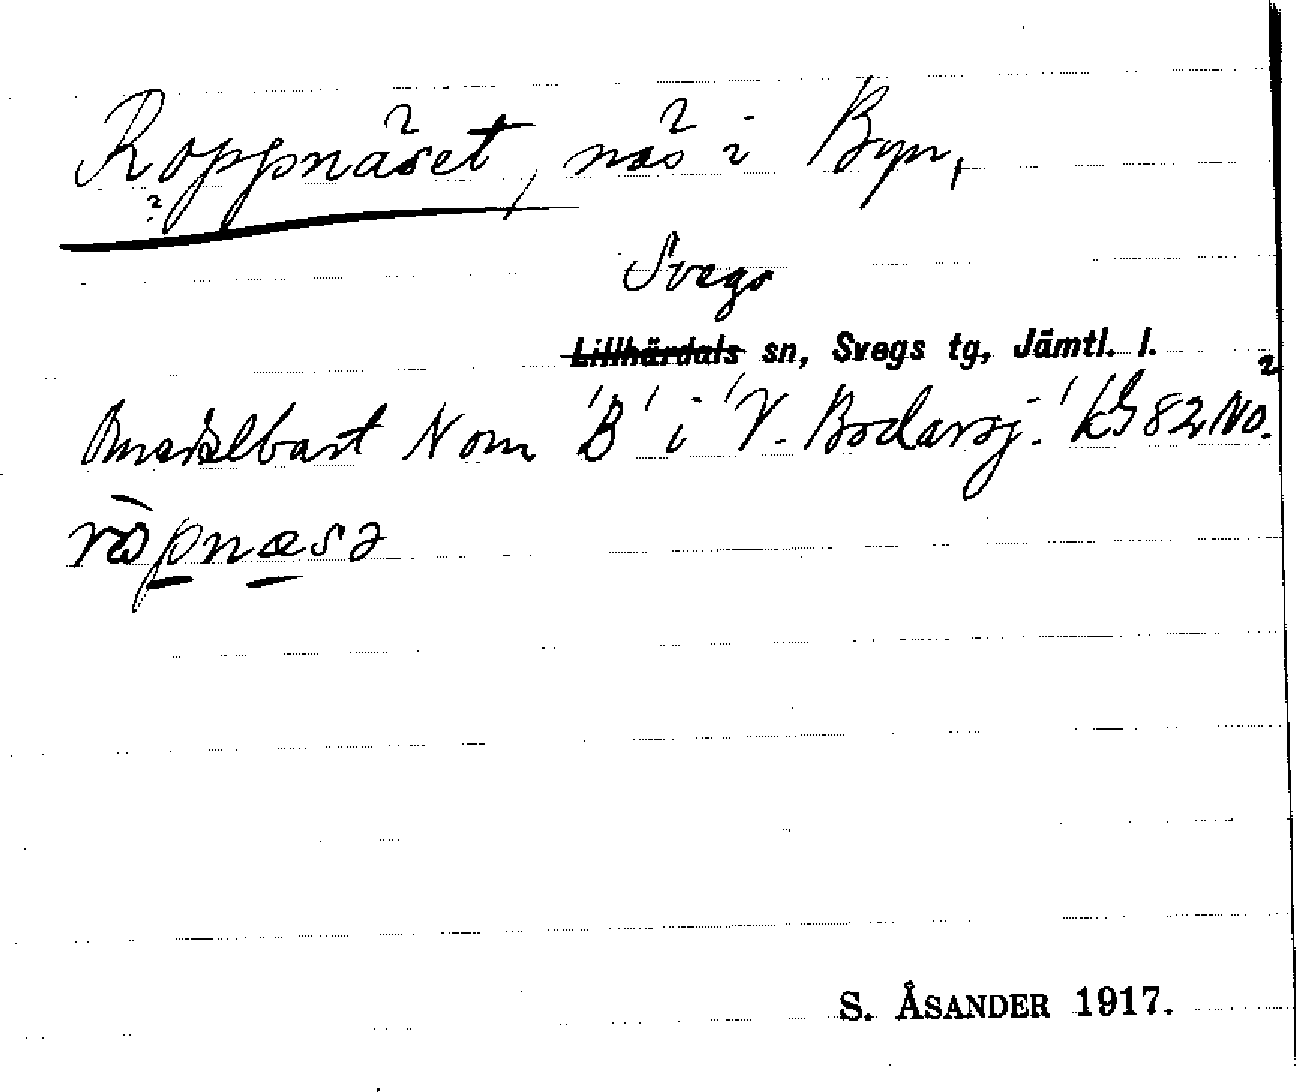 Roppnäset, näs i Byn,
Svegs
Lillhärdals sn, Svegs tg, Jämtl. l.
Omedelbart N om 'B' i 'V. Bodarsj.' LG 82 NO.
ròpnæsə
S. ÅSANDER 1917.